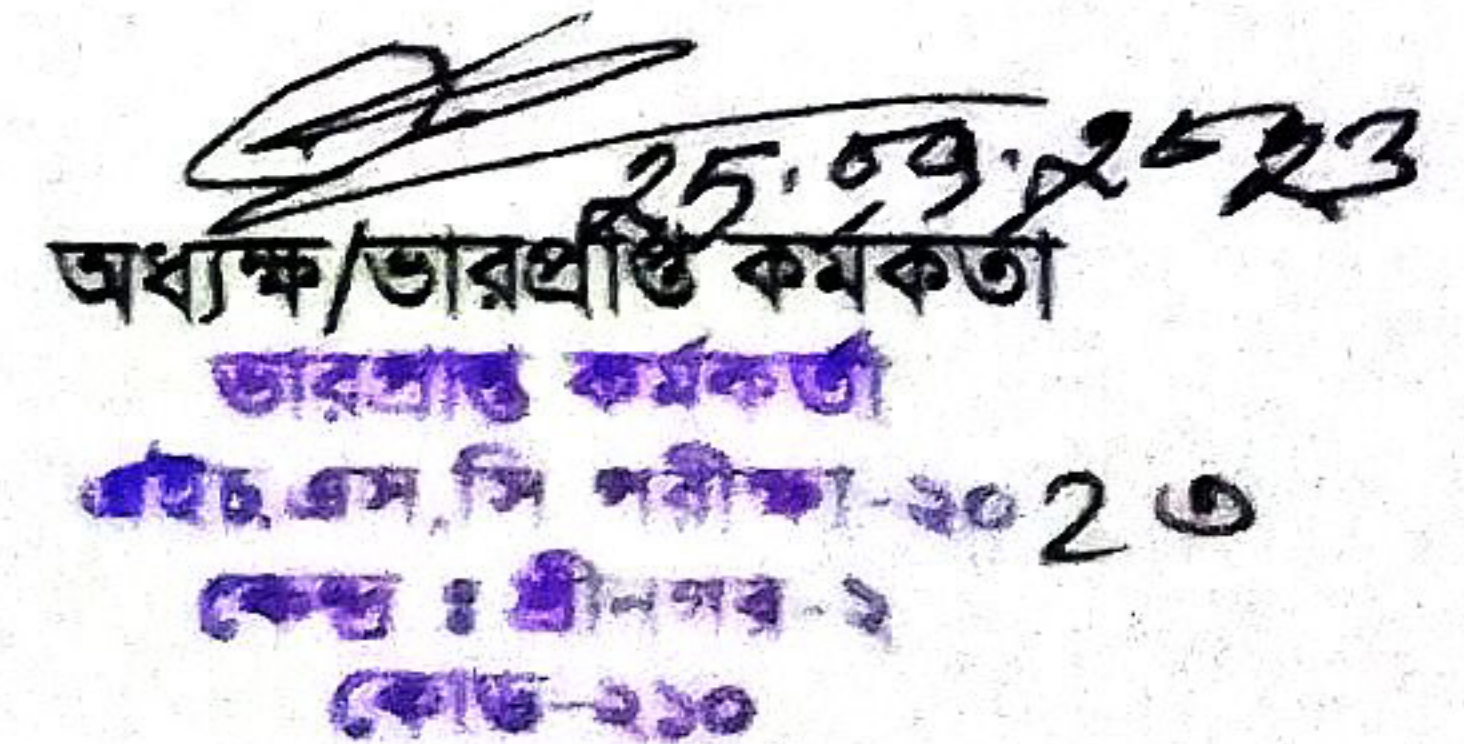 25.09.2023
অধ্যক্ষ/ভারপ্রাপ্ত কর্মকর্তা
ভারপ্রাপ্ত কর্মকর্তা
এইচ.এস.সি পরীক্ষা-২০2৩
কেন্দ্র : শ্রীনগর-১
কোড-২১০